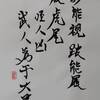 眇能視 跛能履
履虎尾
咥人凶
武人為于大君